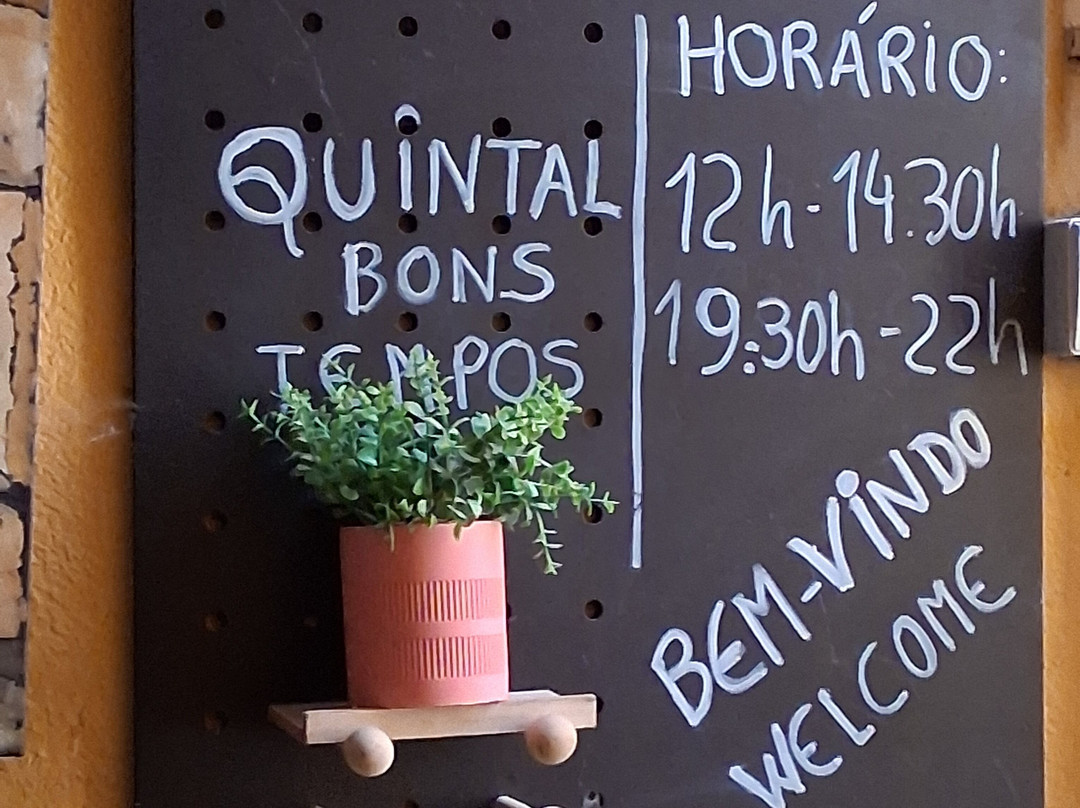 QUINTAL
BONS
TEMPOS
HORÁRIO:
12h-14.30h
19:30h-22h
BEM-VINDO
WELCOME